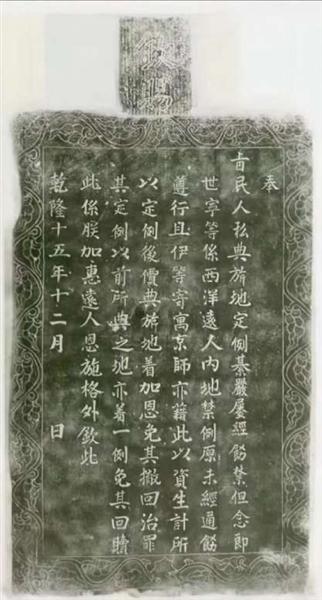 奉
旨民人私典旂地定例綦嚴屢經飭禁但念郎
世寧等係西洋遠人內地禁例原未經通飭
遵行且伊等寄寓京師亦藉此以資生計所
以定例後價典旂地着加恩免其撤回治罪
其定例以前所典之地亦着一例免其回贖
此係朕加惠遠人恩施格外欽此
乾隆十五年十二月 日